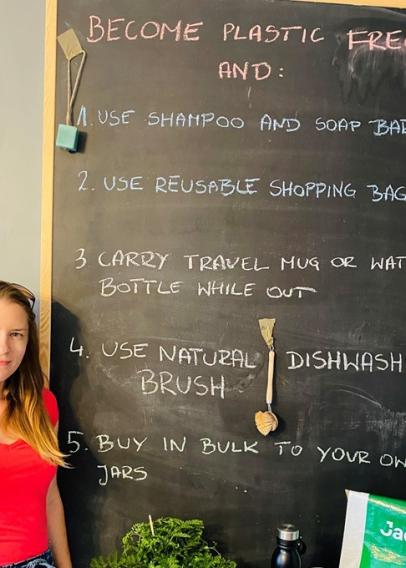 BECOME PLASTIC FRE
AND:
1. USE SHAMPOO AND SOAP BAR
2. USE REUSABLE SHOPPING BAG
3 CARRY TRAVEL MUG OR WAT
BOTTLE WHILE OUT
4. USE NATURAL DISHWASH
BRUSH
5. BUY IN BULK TO YOUR OW
JARS
Ja